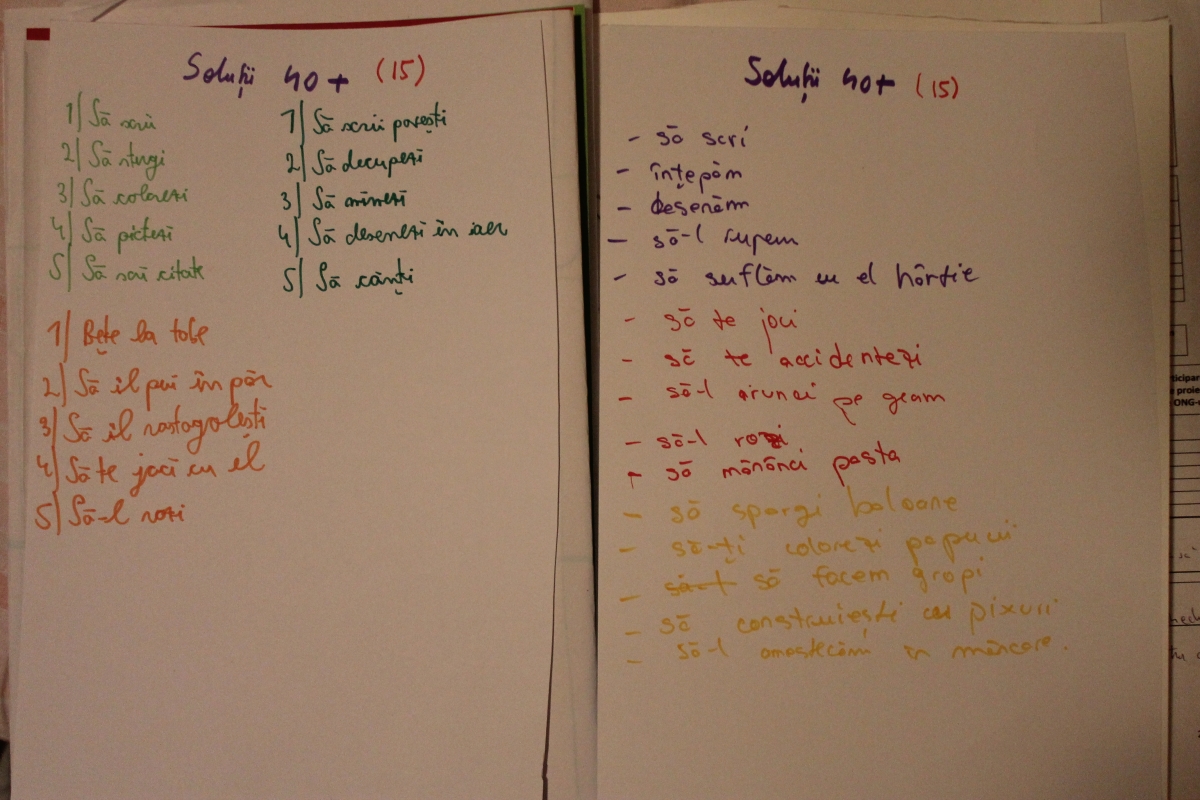 Soluții 40+ (15)
1) Să scrii
2) Să ștergi
3) Să colorezi
4) Să pictezi
5) Să scrii citate
1) Să scrii povești
2) Să decupezi
3) Să animezi
4) Să desenezi în aer
5) Să cânți
1) Bețe la tobe
2) Să il pui în păr
3) Să il rostogolești
4) Să te joci cu el
5) Să-l rozi
Soluții 40+ (15)
- să scri
- înțepăm
- desenăm
- să-l rupem
- să suflăm cu el hârtie
- să te joci
- să te accidentezi
- să-l arunci pe geam
- să-l rozi
- să mănânci pasta
- să spargi baloane
- să-ți colorezi papucii
- să-l să facem gropi
- să construiești cu pixuri
- să-l amestecăm în mâncare.
ticipar
proie
ONG-